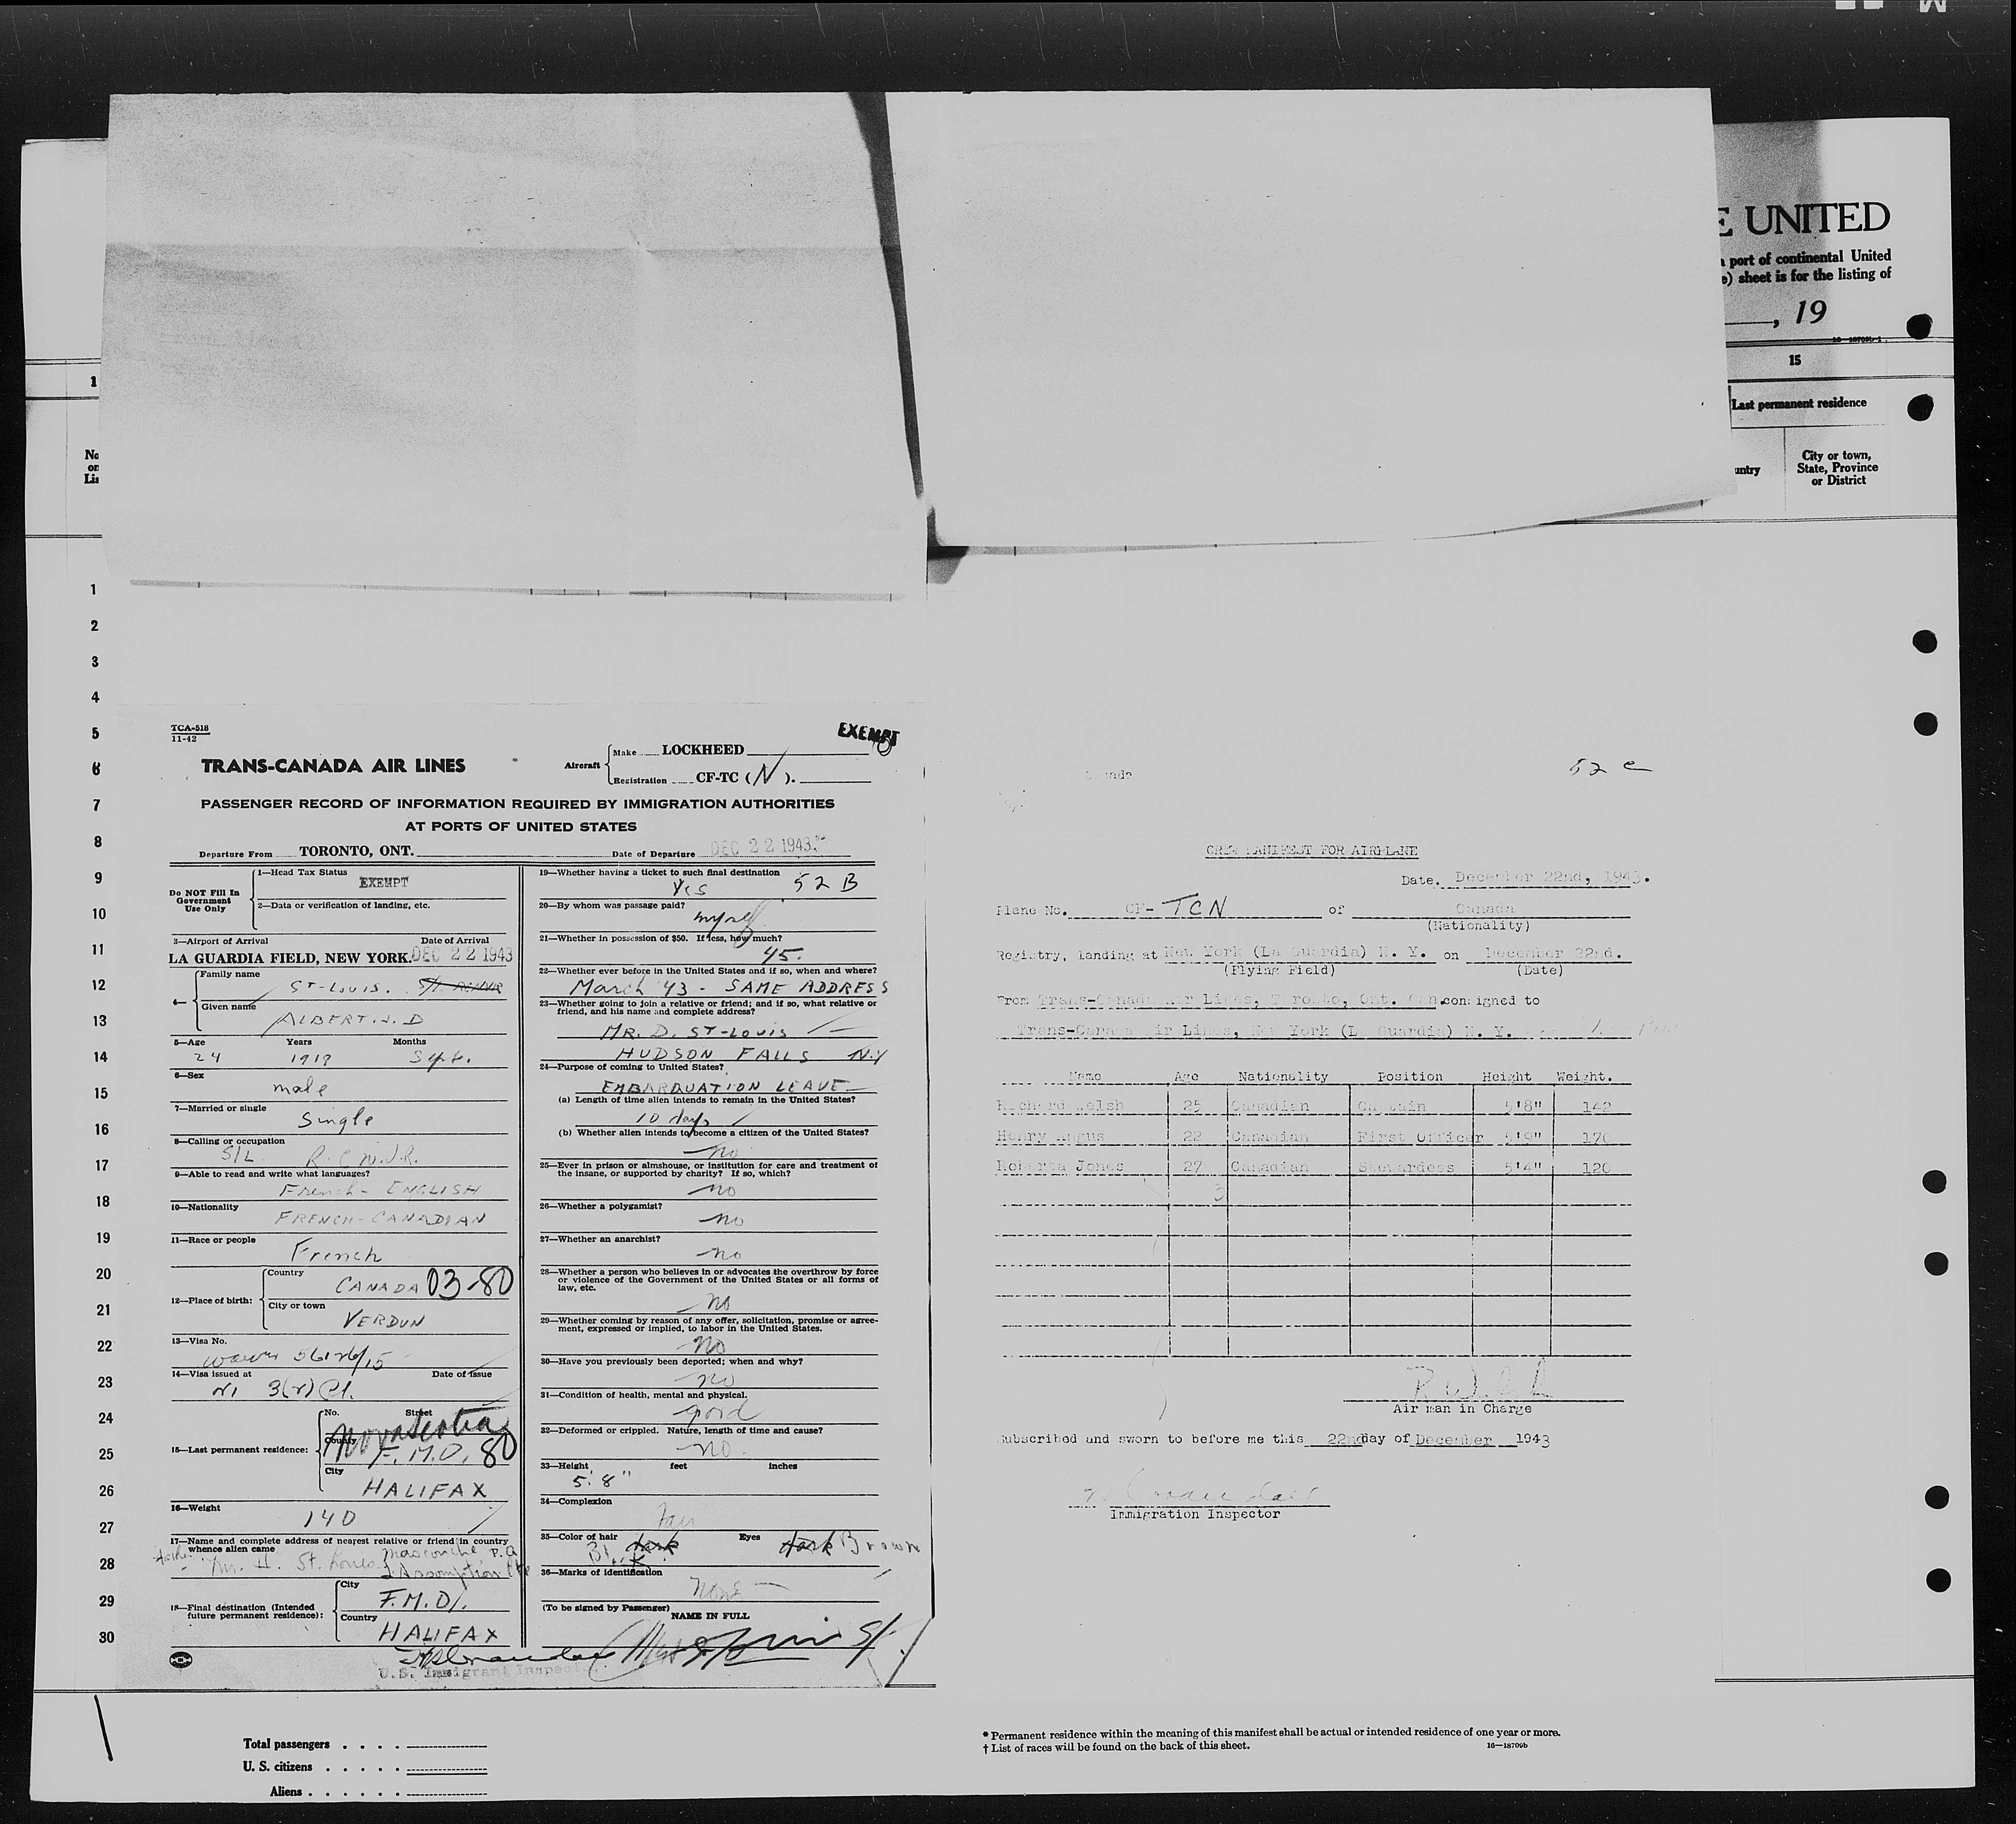 E UNITED
a port of continental United
e) sheet is for the listing of
, 19
16—18709b-1
15
Last permanent residence
untry
City or town,
State, Province
or District
1
No
on
Lis
1
2
3
4
5
6
7
8
9
10
11
12
13
14
15
16
17
18
19
20
21
22
23
24
25
26
27
28
29
30
TCA-518
11-42
EXEMPT
TRANS-CANADA AIR LINES
Aircraft
Make LOCKHEED
Registration CF-TC (N).
PASSENGER RECORD OF INFORMATION REQUIRED BY IMMIGRATION AUTHORITIES
AT PORTS OF UNITED STATES
Departure From TORONTO, ONT.
Date of Departure DEC 22 1943
Do NOT Fill In
Government
Use Only
1—Head Tax Status
EXEMPT
2—Data or verification of landing, etc.
3—Airport of Arrival Date of Arrival
LA GUARDIA FIELD, NEW YORK. DEC 22 1943
4— Family name
ST-LOUIS.
Given name
ALBERT.J.D
5—Age Years Months
24 1919 Sept.
6—Sex
male
7—Married or single
Single
8—Calling or occupation
S/L R.C.N.V.R.
9—Able to read and write what languages?
French - ENGLISH
10—Nationality
FRENCH-CANADIAN
11—Race or people
French
12—Place of birth:
Country
CANADA 03-80
City or town
VERDUN
13—Visa No.
waiver 56126/15
14—Visa issued at Date of Issue
3(2) Cl.
15—Last permanent residence:
No. Street
Nova Scotia
County
F.M.O. 80
City
HALIFAX
16—Weight
140
17—Name and complete address of nearest relative or friend in country
whence alien came
father Mr. H. St. Louis Mascouche, P.Q
L'Assomption
18—Final destination (Intended
future permanent residence):
City
F.M.O.
Country
HALIFAX
U.S. Immigrant Inspector
19—Whether having a ticket to such final destination
Yes 52 B
20—By whom was passage paid?
myself
21—Whether in possession of $50. If less, how much?
45.
22—Whether ever before in the United States and if so, when and where?
March '43 - SAME ADDRESS
23—Whether going to join a relative or friend; and if so, what relative or
friend, and his name and complete address?
MR. D. ST-LOUIS
HUDSON FALLS N.Y
24—Purpose of coming to United States?
EMBARQUATION LEAVE
(a) Length of time alien intends to remain in the United States?
10 days
(b) Whether alien intends to become a citizen of the United States?
no
25—Ever in prison or almshouse, or institution for care and treatment of
the insane, or supported by charity? If so, which?
no
26—Whether a polygamist?
no
27—Whether an anarchist?
no
28—Whether a person who believes in or advocates the overthrow by force
or violence of the Government of the United States or all forms of
law, etc.
no
29—Whether coming by reason of any offer, solicitation, promise or agree-
ment, expressed or implied, to labor in the United States.
no
30—Have you previously been deported; when and why?
no
31—Condition of health, mental and physical.
good
32—Deformed or crippled. Nature, length of time and cause?
no.
33—Height feet inches
5' 8"
34—Complexion
fair
35—Color of hair dark Eyes dark Brown
36—Marks of identification
None
(To be signed by Passenger)
NAME IN FULL
Canada
52 c
CREW MANIFEST FOR AIRPLANE
Date. December 22nd, 1943.
Plane No. CF- TCN of Canada
(Nationality)
Registry, landing at New York (La Guardia) N. Y. on December 22nd.
(Flying Field) (Date)
From Trans-Canada Air Lines, Toronto, Ont. Can. consigned to
Trans-Canada Air Lines, New York (La Guardia) N. Y.
Name Age Nationality Position Height Weight.
Richard Welsh 25 Canadian Captain 5'8" 142
Henry Angus 22 Canadian First Officer 5'9" 170
Roberta Jones 27 Canadian Stewardess 5'4" 120
3
R Welsh
Air man in Charge
Subscribed and sworn to before me this 22nd day of December 1943
Immigration Inspector
Total passengers . . . .
U. S. citizens . . . . .
Aliens . . . . . .
* Permanent residence within the meaning of this manifest shall be actual or intended residence of one year or more.
† List of races will be found on the back of this sheet.
16—18709b